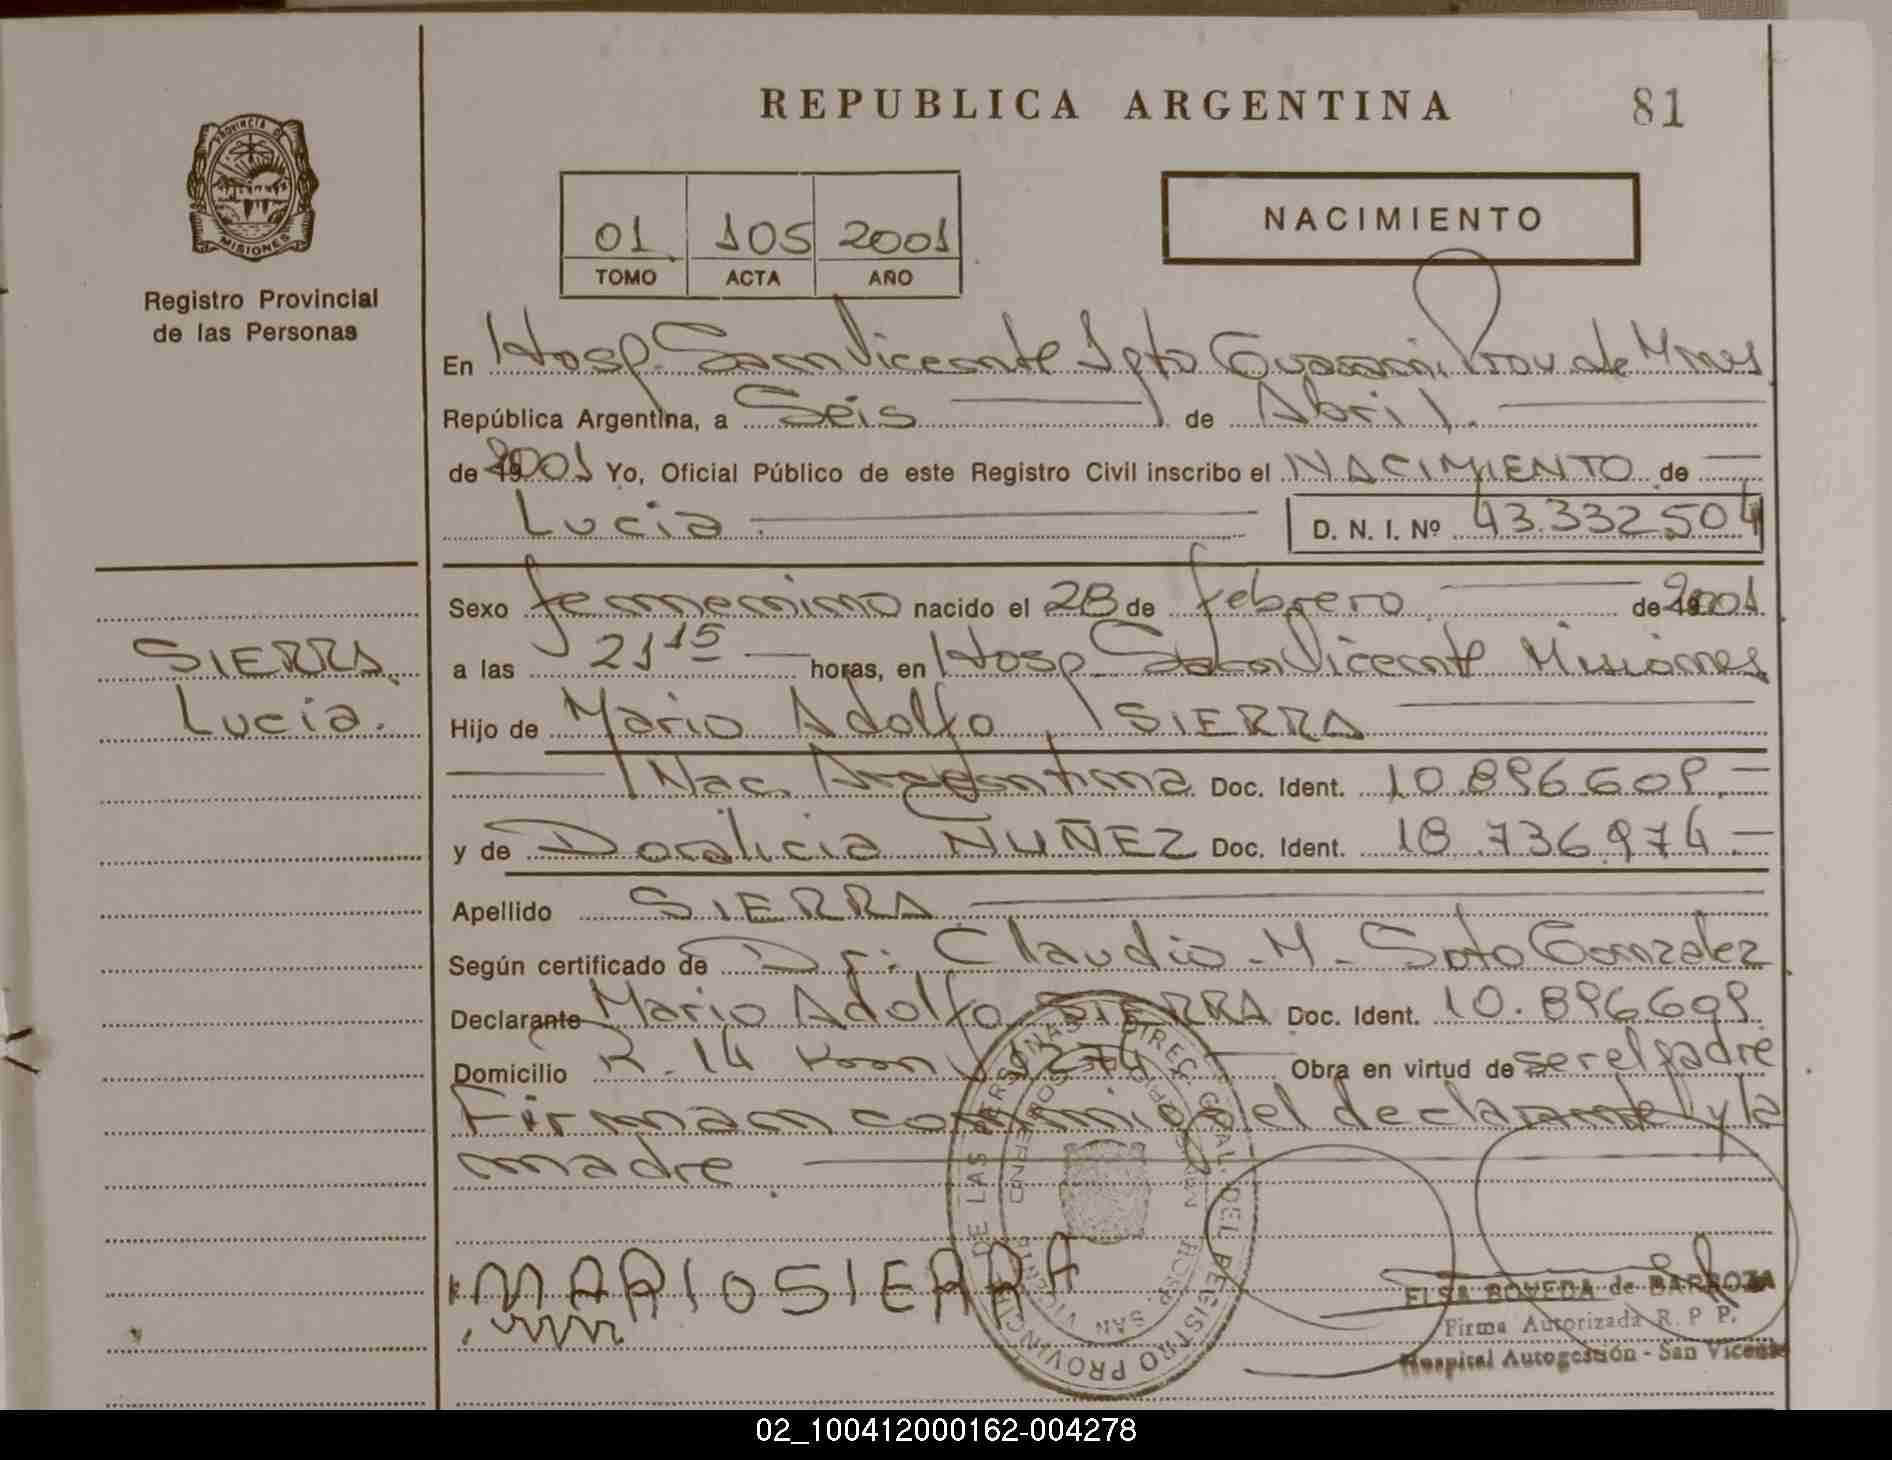 REPUBLICA ARGENTINA
81
PROVINCIA DE
MISIONES
Registro Provincial
de las Personas
01 105 2001
TOMO ACTA AÑO
NACIMIENTO
En Hosp. San Vicente Dpto Guarani Prov de Mnes
República Argentina, a Seis de Abril.
de 2001 Yo, Oficial Público de este Registro Civil inscribo el NACIMIENTO de
Lucia D. N. I. Nº 43.332504
Sexo femenino nacido el 28 de febrero de 2001
a las 21 15 horas, en Hosp San Vicente Misiones
Hijo de Mario Adolfo SIERRA
Nac. Argentina Doc. Ident. 10.896.609.
y de Doralicia NUÑEZ Doc. Ident. 18.736.974
Apellido SIERRA
Según certificado de Dr: Claudio M. Soto Gonzalez
Declarante Mario Adolfo SIERRA Doc. Ident. 10.896609
Domicilio R. 14 Km 1274 Obra en virtud de ser el padre
Firman conmigo el declarante y la
madre.
SIERRA
Lucia.
MARIO SIERRA
DIREC. GRAL. DEL REGISTRO PROVINCIAL DE LAS PERSONAS
HOSP. SAN VICENTE
ELSA BOVEDA de BARBOZA
Firma Autorizada R. P. P.
Hospital Autogestión - San Vicente
02_100412000162-004278